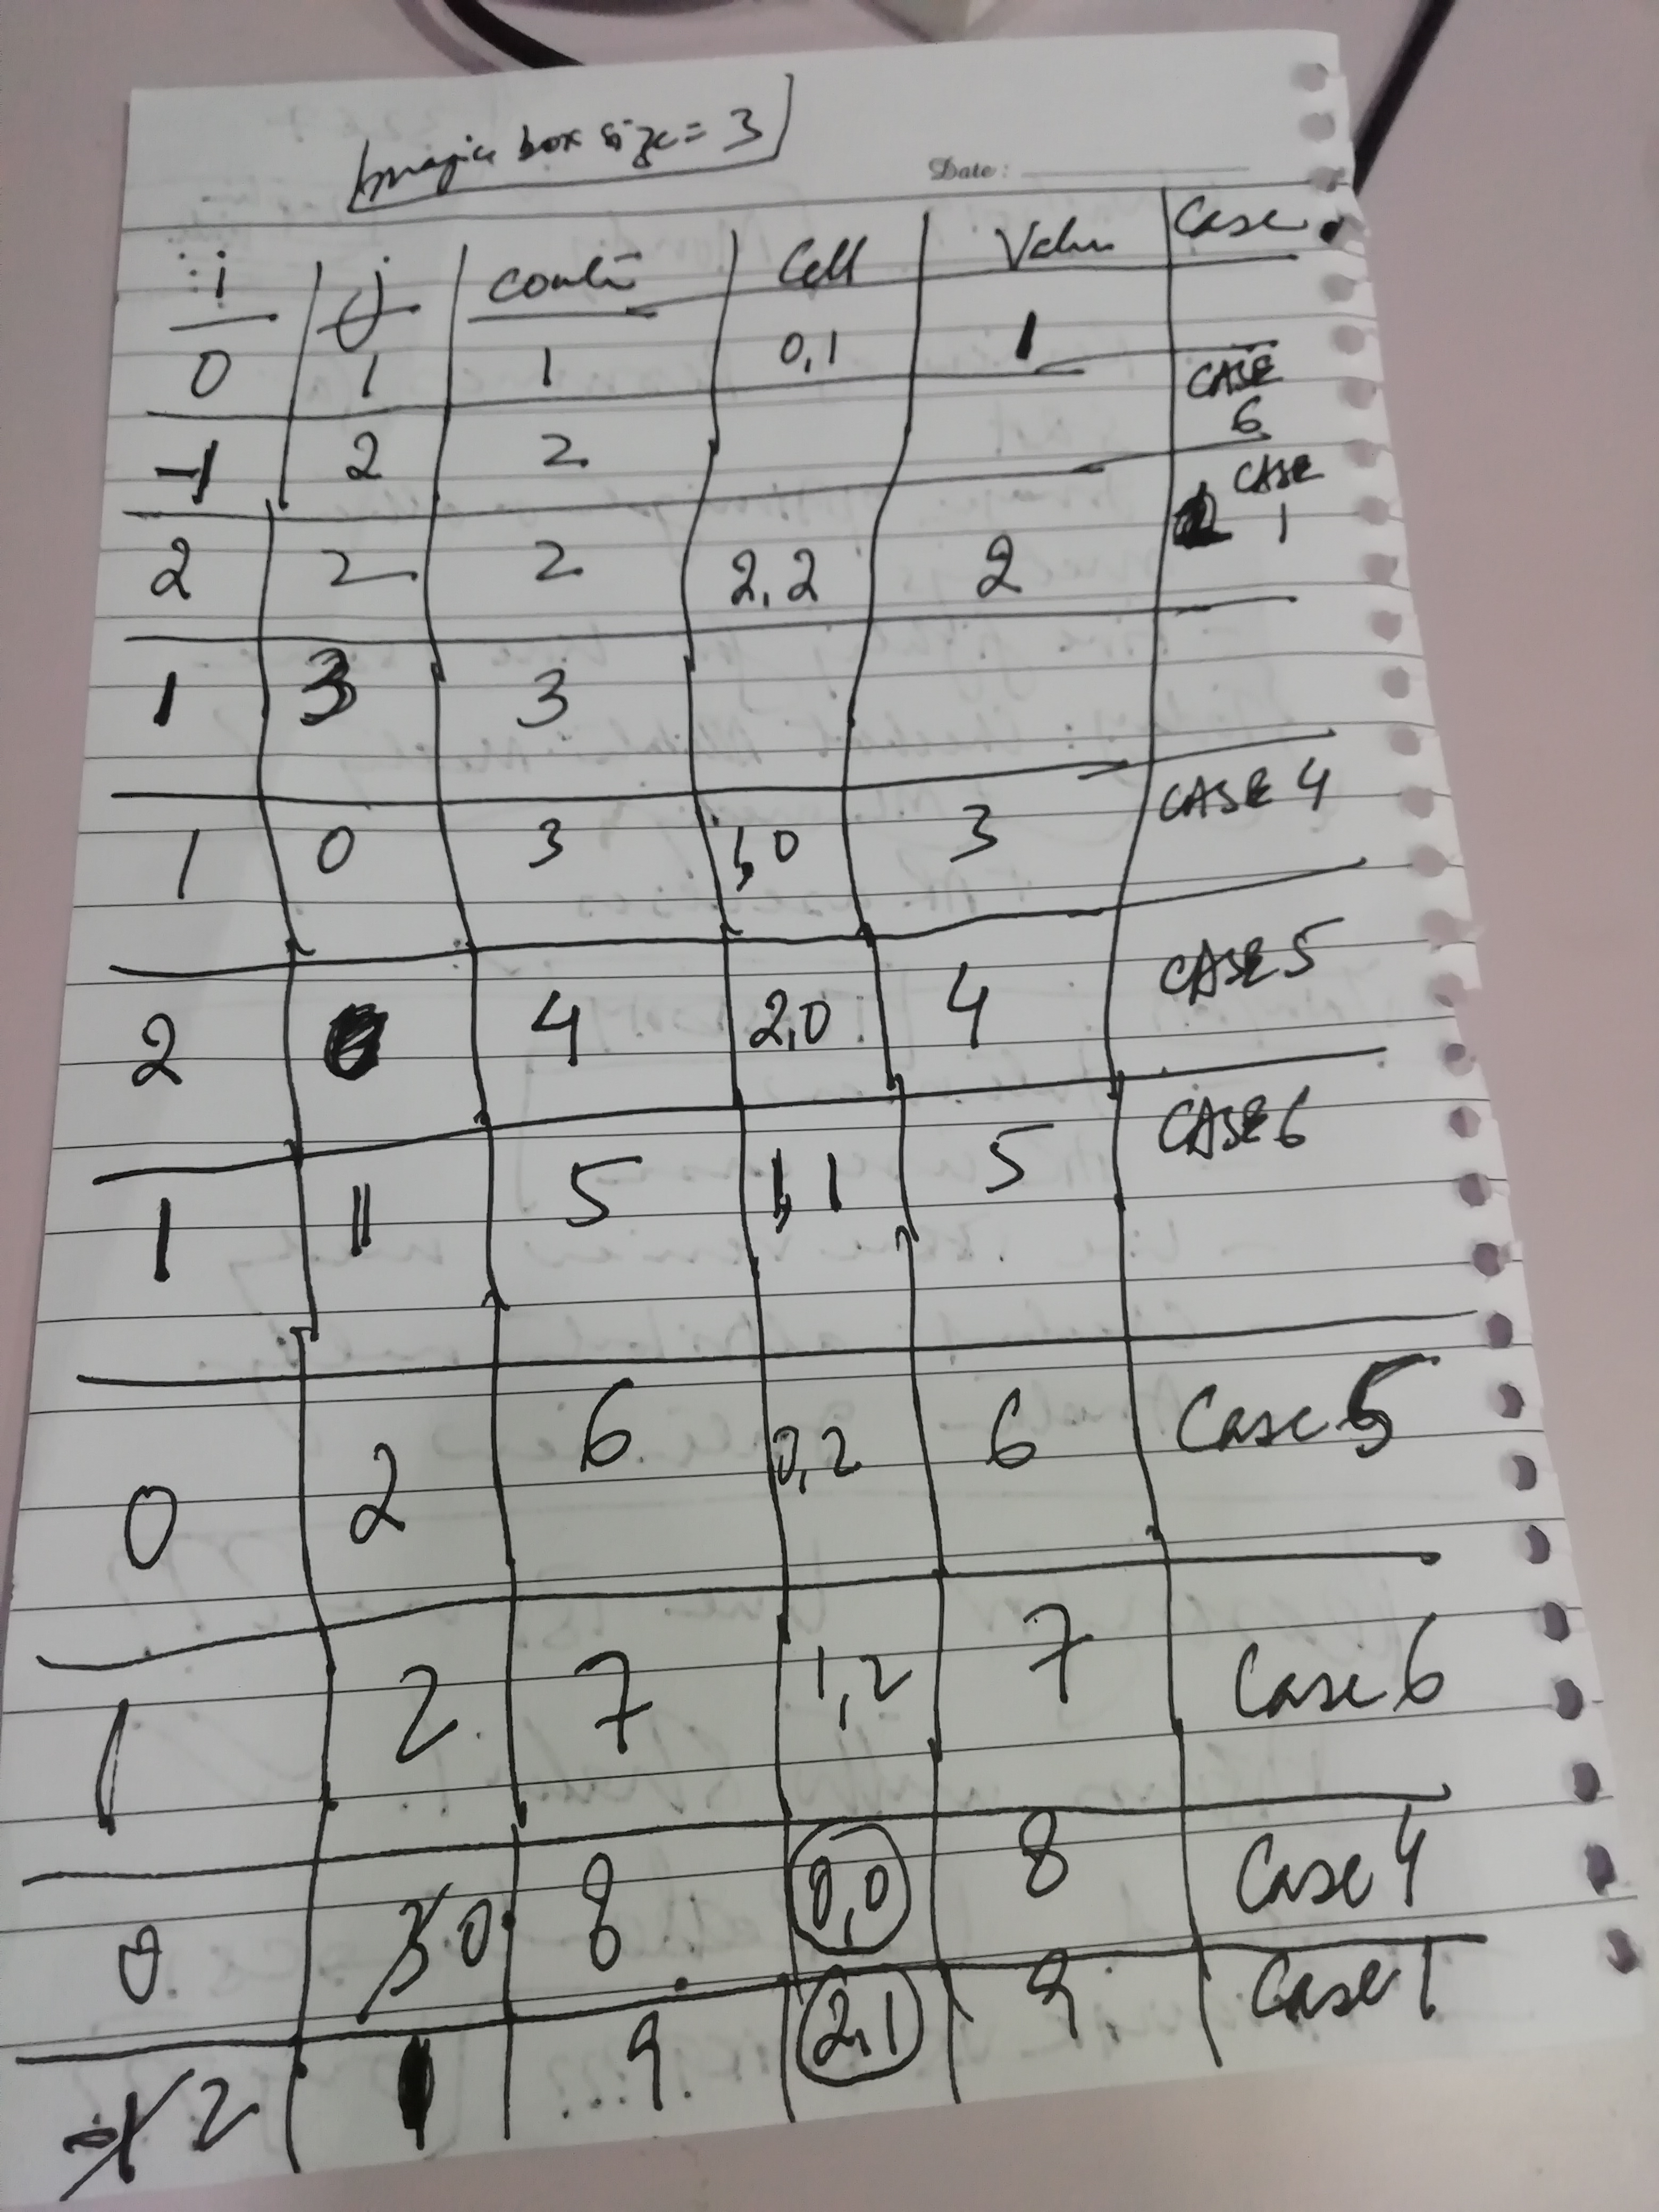 magic box size = 3
Date:
i j count Cell Value Case
0 1 1 0,1 1
CASE 6
-1 2 2
CASE 1
2 2 2 2,2 2
1 3 3
1 0 3 1,0 3 CASE 4
2 0 4 2,0 4 CASE 5
1 1 5 1,1 5 CASE 6
0 2 6 0,2 6 Case 5
1 2 7 1,2 7 Case 6
0 3 0 8 0,0 8 Case 4
-1 2 1 9 2,1 9 Case 1